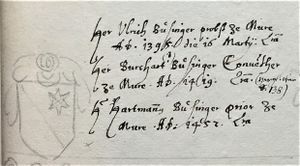 Her Ulrich Büsinger probst ze Mure
Ao. 1395. die 16 Martij.
Her Burchart Büsinger Conventher
ze Mure. Ao. 1419.
H. Hartmann Büsinger prior ze
Mure. Ao. 1452.